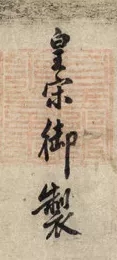 皇宋御製